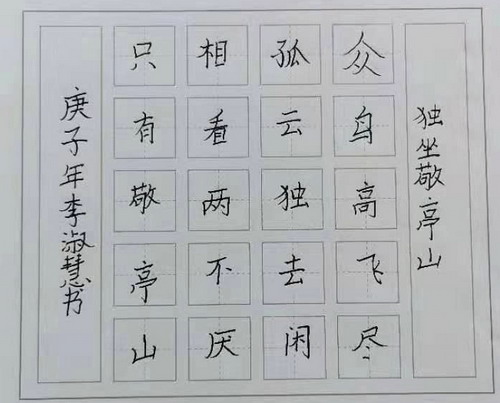 独坐敬亭山
众鸟高飞尽
孤云独去闲
相看两不厌
只有敬亭山
庚子年李淑慧书